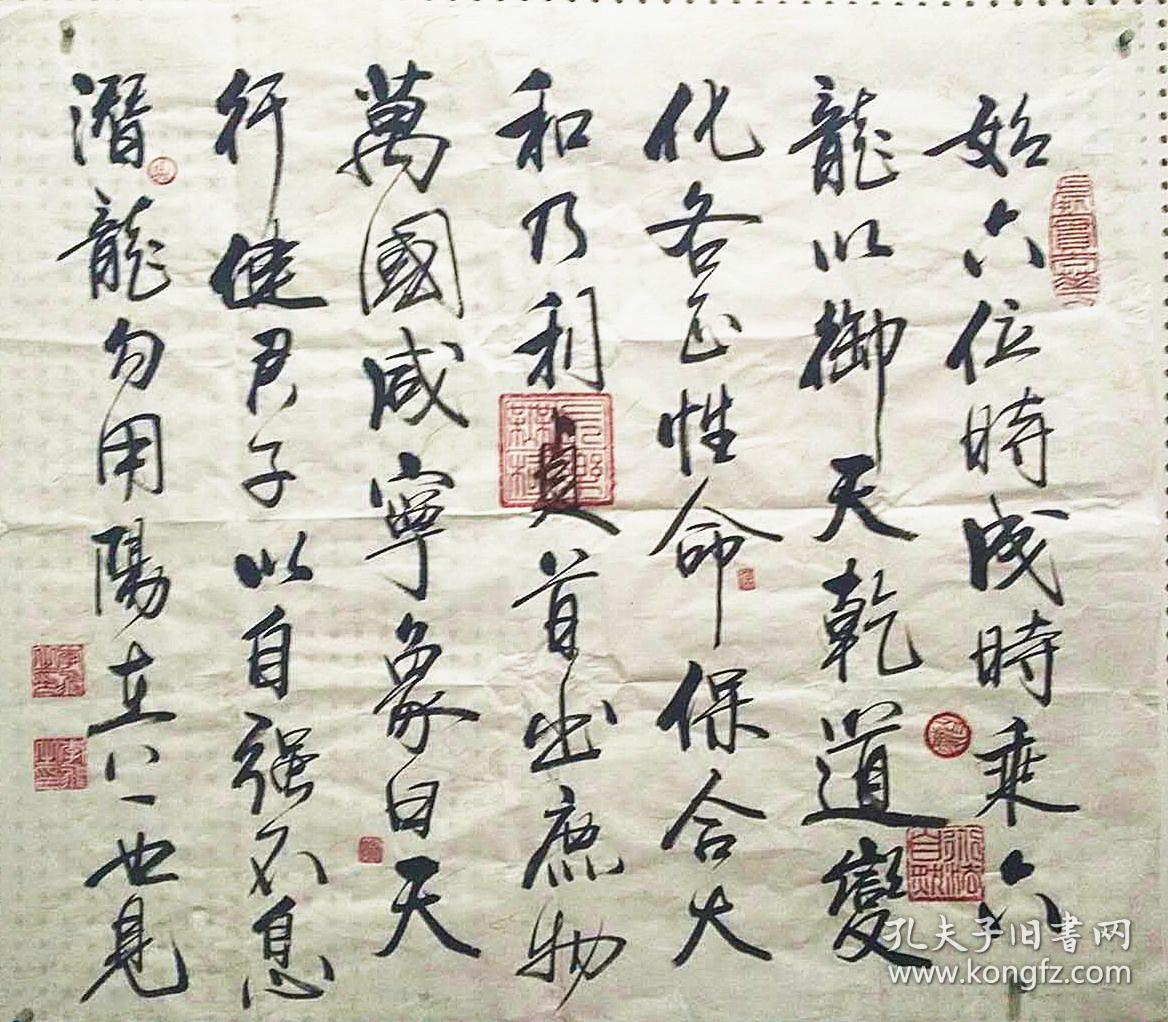 始六位時成時乘六
龍以御天乾道變
化各正性命保合大
和乃利貞首出庶物
萬國咸寧象曰天
行健君子以自强不息
潛龍勿用陽在下也見
孔夫子旧書网
www.kongfz.com